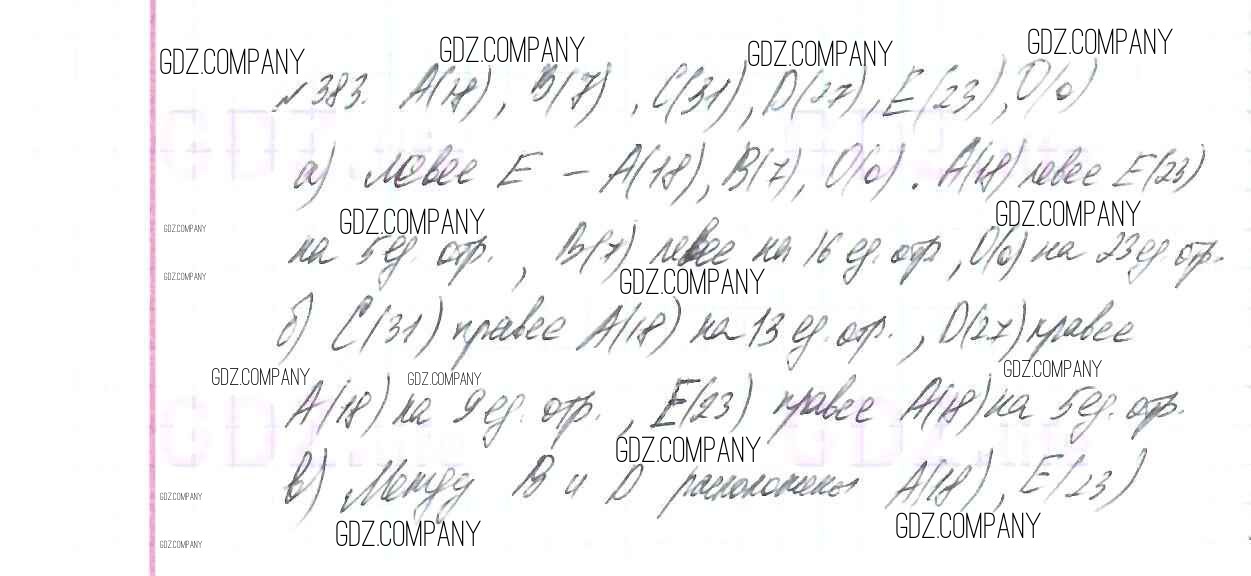 GDZ.COMPANY GDZ.COMPANY GDZ.COMPANY GDZ.COMPANY
№383. A(18), B(7), C(31), D(27), E(23), O(0)
а) левее E – A(18), B(7), O(0). A(18) левее E(23)
GDZ.COMPANY GDZ.COMPANY GDZ.COMPANY
на 5 ед. отр., B(7) левее на 16 ед. отр, O(0) на 23 ед. отр.
GDZ.COMPANY GDZ.COMPANY
б) C(31) правее A(18) на 13 ед. отр., D(27) правее
GDZ.COMPANY GDZ.COMPANY GDZ.COMPANY
A(18) на 9 ед. отр., E(23) правее A(18) на 5 ед. отр.
GDZ.COMPANY
в) Между B и D расположены A(18), E(23)
GDZ.COMPANY
GDZ.COMPANY GDZ.COMPANY
GDZ.COMPANY